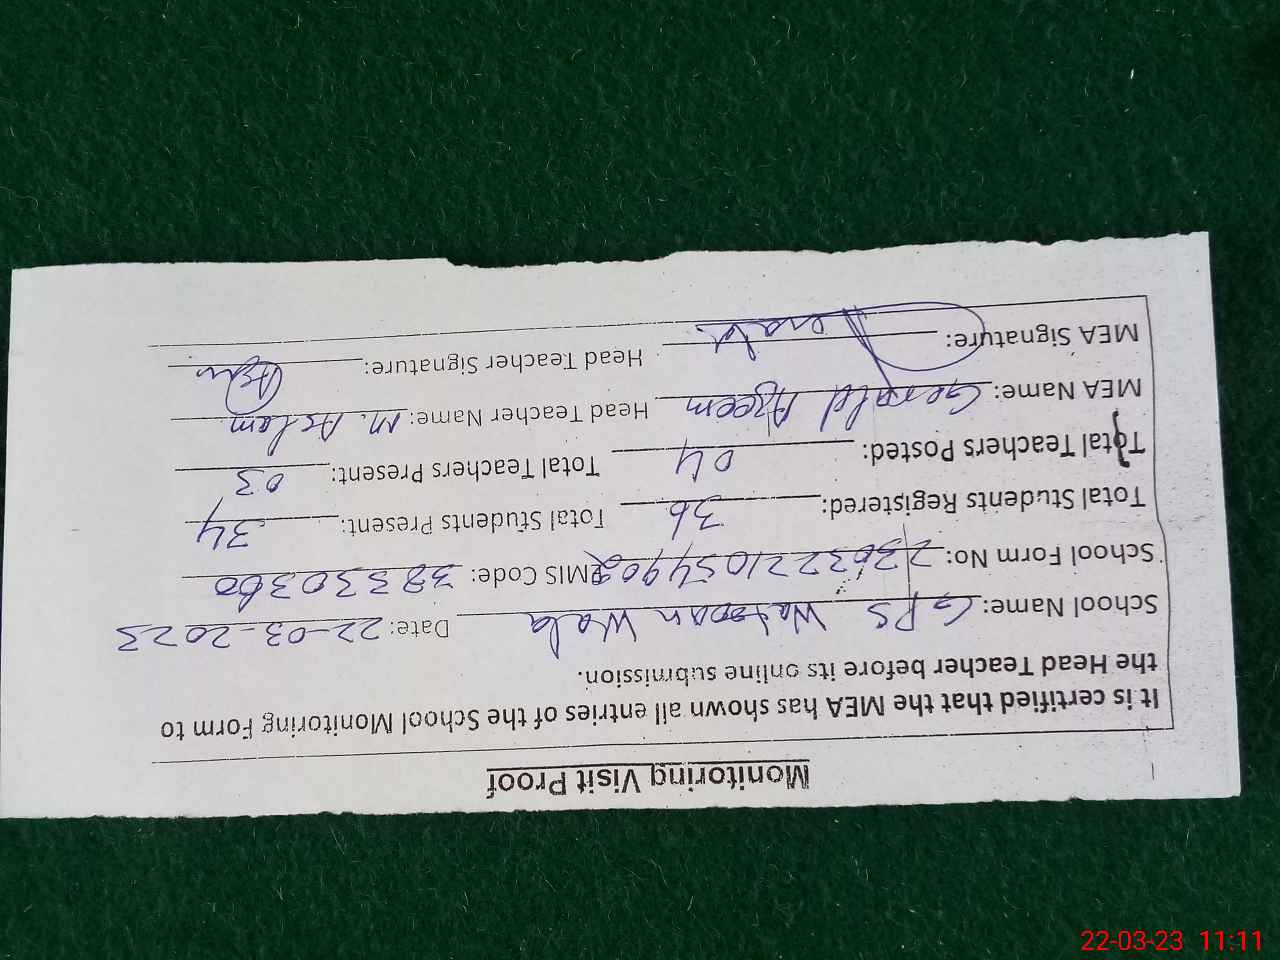 Monitoring Visit Proof
It is certified that the MEA has shown all entries of the School Monitoring Form to
the Head Teacher before its online submission.
School Name: GPS Wala Date: 22-03-2023
School Form No: EMIS Code: 38330360
Total Students Registered: 36 Total Students Present: 34
Total Teachers Posted: 04 Total Teachers Present: 03
MEA Name: Gerald Azeem Head Teacher Name: M. Aslam
MEA Signature: Gerald Head Teacher Signature:
22-03-23 11:11